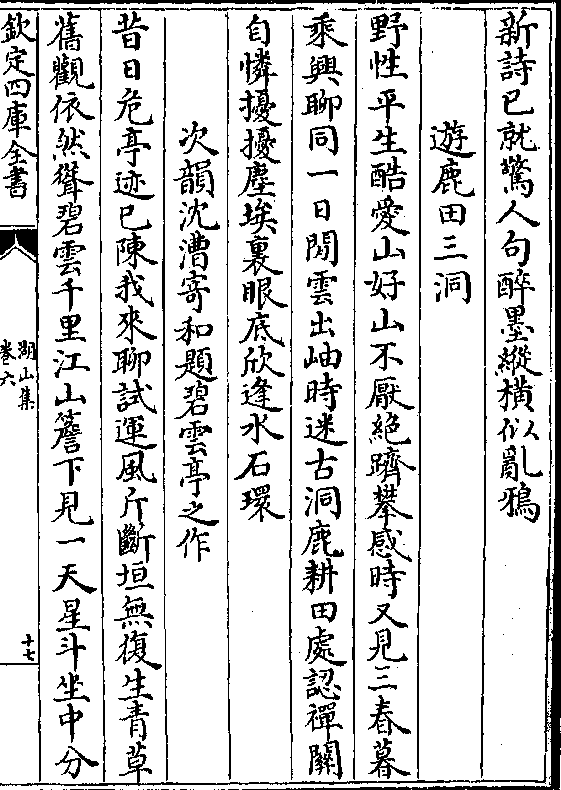 新詩已就驚人句醉墨縱横似亂鴉
遊鹿田三洞
野性平生酷愛山好山不厭絶躋攀感時又見三春暮
乘興聊同一日閒雲出岫時迷古洞鹿耕田處認禪關
自憐擾擾塵埃裏眼底欣逢水石環
次韻沈漕寄和題碧雲亭之作
昔日危亭迹已陳我來聊試運風斤斷垣無復生青草
舊觀依然聳碧雲千里江山簷下見一天星斗坐中分
欽定四庫全書
湖山集
卷六
十七